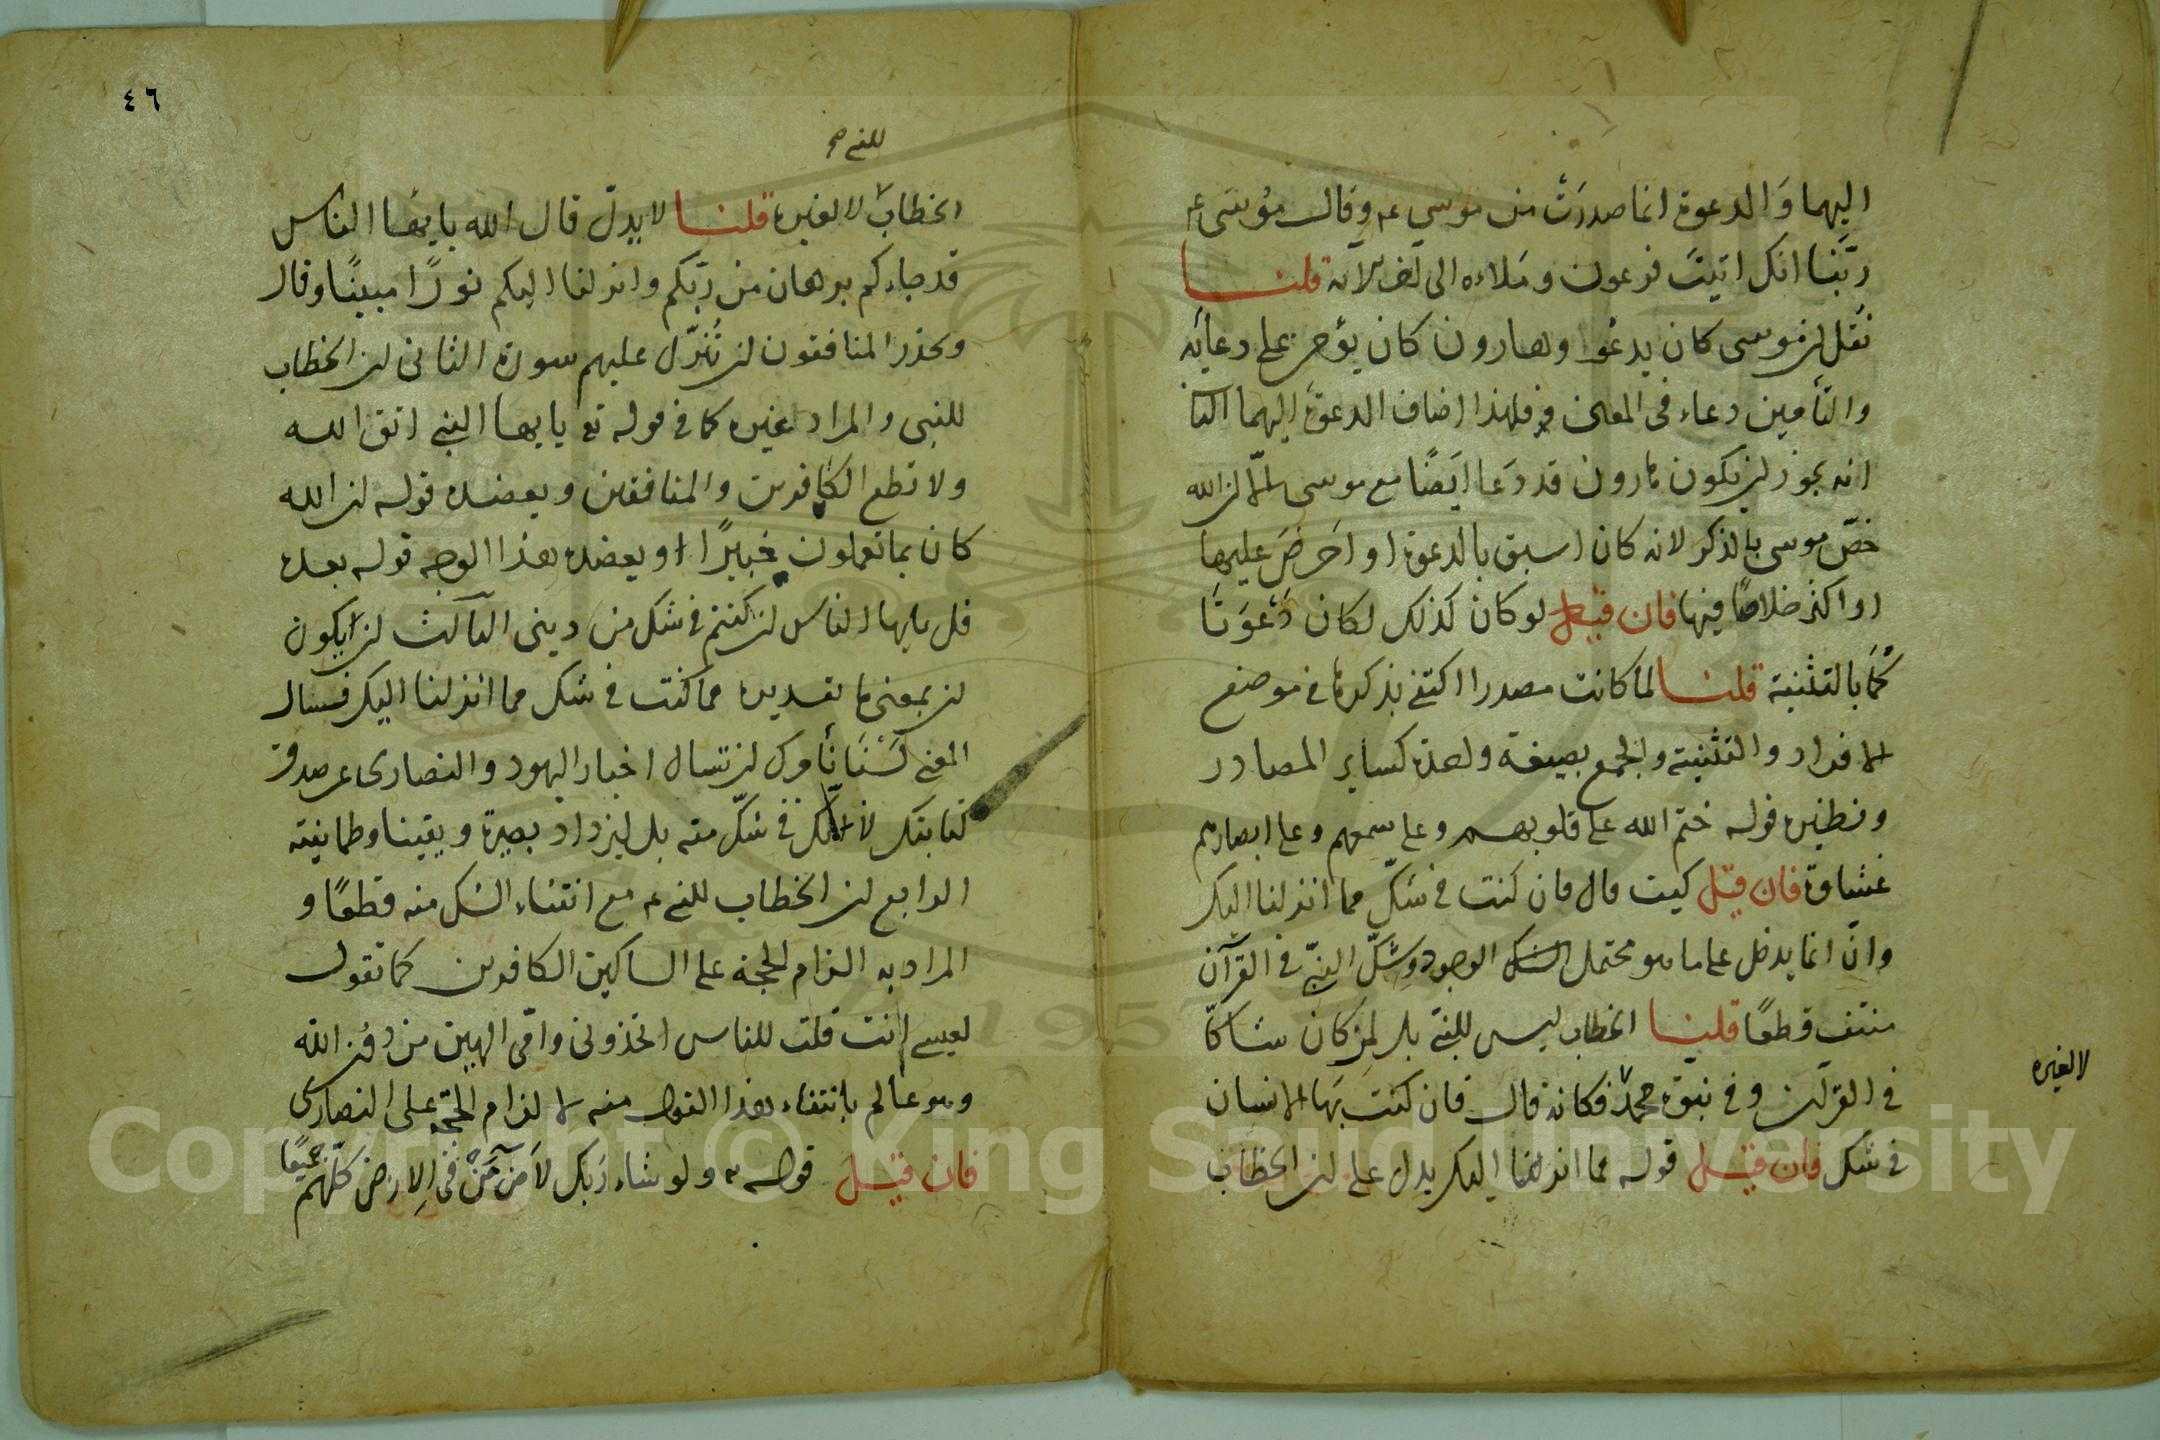 اليهما وَالدعوة انما صدرَتْ من موسى عم وقال موسى عم
ربّنا انك اتيتَ فرعون ومَلاءه الى اخر الآية قلنا
نُقل ان موسى كان يدعُو وهارون كان يؤمن على دعائه
والتأمين دعاء فى المعنى فلهذا اضاف الدعوة اليهما الثا
انه يجوز ان يكون هارون قد دَعَا ايَضًا مع موسى الا ان الله
خصّ موسى بالذكر لانه كان اسبق بالدعوة او احَرصَ عليها
او اكثر خلاصًا فيها فان قيل لو كان كذلك لكان دَعْوَتَا
كُمَا بالتثنية قلنا لما كانت مصدرا اكتفى بذكرها فى موضع
الافراد والتثنية والجمع بصيغة واحدة كساير المصادر
ونظيره قوله ختم الله على قلوبهم وعلى سمعهم وعلى ابصارهم
غشاوة فان قيل كيف قال فان كنت فى شكّ مما انزلنا اليك
وانّ انما يدخل على ما هو محتمل الوجود وشكّ النبىّ فى القرآن
منتف قطعًا قلنا الخطاب ليس للنبىّ بل لمن كان شاكّا
فى القرآن وفى نبوّة محمد فكانه قال فان كنت يَها الانسان
فى شك فان قيل قوله مما انزلنا اليك يدل على ان الخطاب
لا لغيره
٤٦
للنبى صح
الخطاب لا لغيره قلنا لا يدلّ قال الله يا ايها الناس
قد جاءكم برهان من ربّكم وانزلنا اليكم نورًا مبينًا وقال
ويحذر المنافقون ان تُنَزّل عليهم سورة الثانى ان الخطاب
للنبى والمراد غيره كما فى قوله تع يا ايها النبى اتق الله
ولا تطع الكافرين والمنافقين ويعضده قوله ان الله
كان بما تعملون خبيرًا ويعضد هذا الوجه قوله بعده
قل يا ايها الناس ان كنتم فى شك من دينى الثالث ان يكون
ان بمعنى ما تقديره مما كنت فى شك مما انزلنا اليك فسال
المعنى لَسْنَا نَأمرك ان تسال احبار اليهود والنصارى عن صدق
كتابتك لانك فى شكّ منه بل ليزداد بصيرة ويقينا وطمانينة
الرابع ان الخطاب للنبى عم مع انتفاء الشك منه قطعًا و
المراد به الزام الحجة على الشاكين الكافرين كما تقول
لعيسى انت قلت للناس اتخذونى وامى الهين من دون الله
وهو عالم بانتفاء هذا القول منه لا لزام الحجّة على النصارى
فان قيل قوله ولو شاء ربك لآمنَ مَنْ فى الارض كلّهم جميعًا